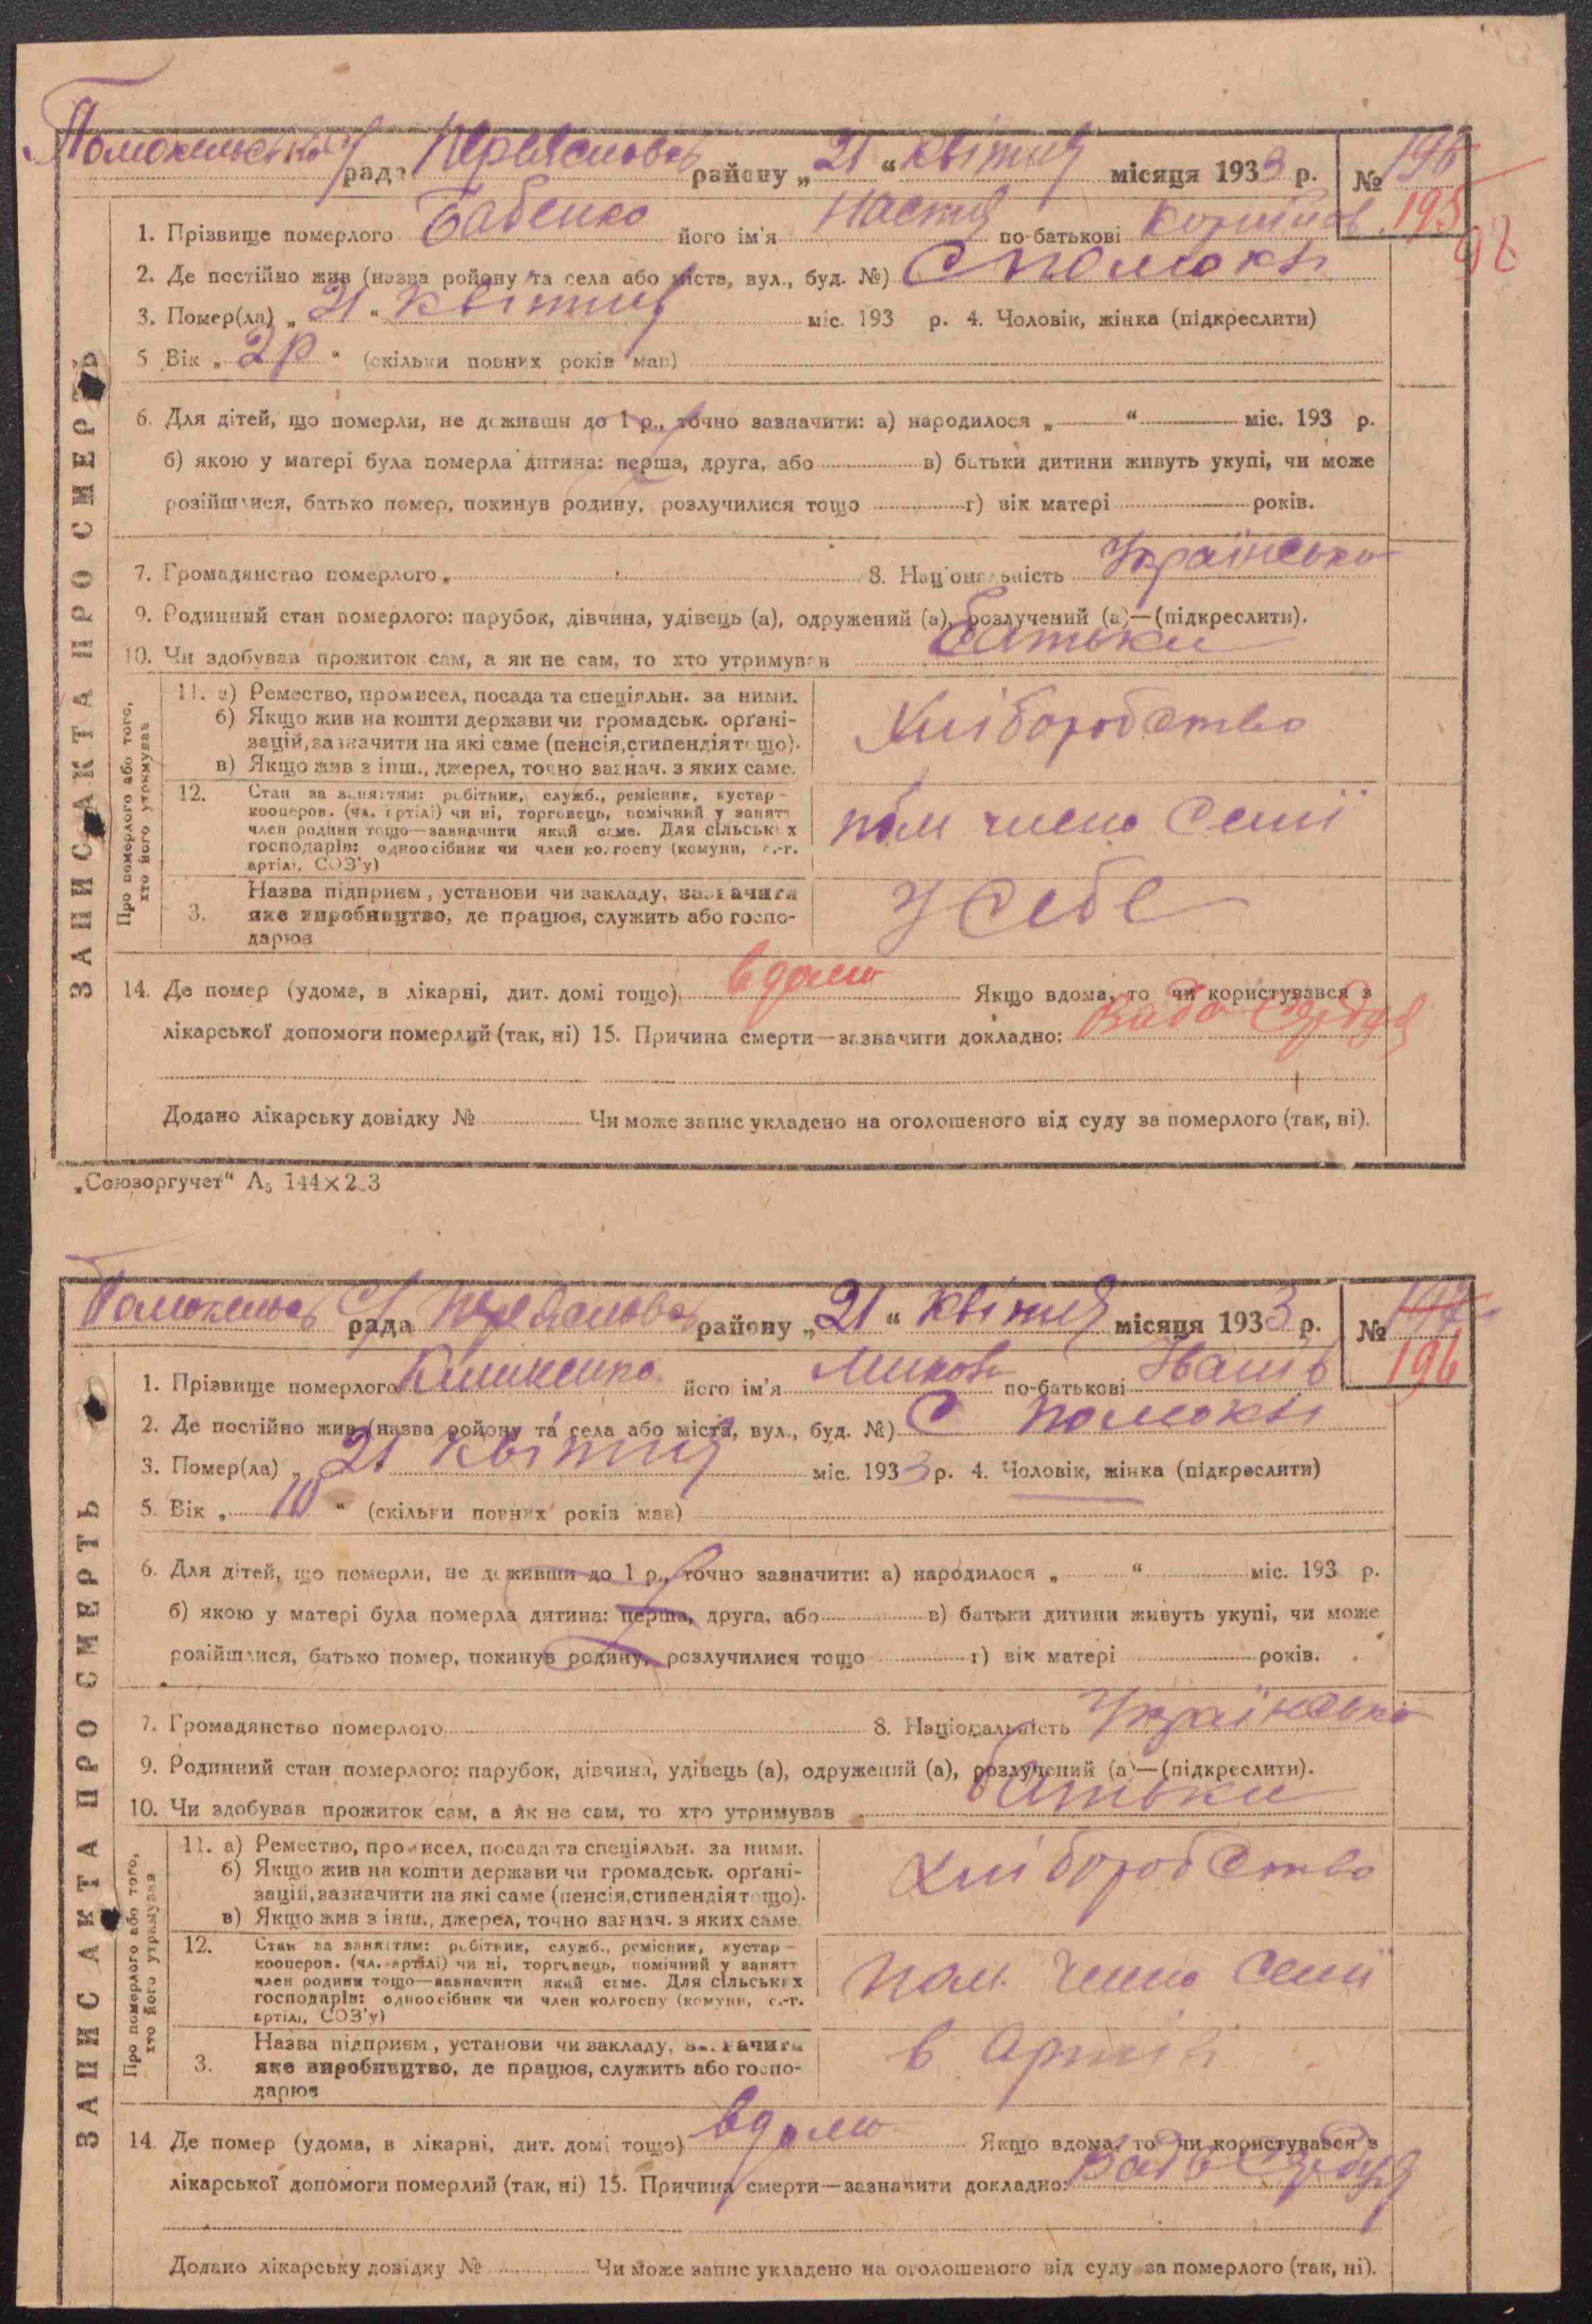 Помокельська рада Переяслов. району „21“ квітня місяця 1933 р. № 196
195
1. Прізвище померлого Бабенко його ім'я Настя по-батькові
2. Де постійно жив (назва ройону та села або міста, вул., буд. №) С Помокл
3. Помер(ла) „21“ квітня міс. 193 р. 4. Чоловік, жінка (підкреслити)
5 Вік „2р“ (скільки повних років мав)
6. Для дітей, що померли, не доживши до 1 р., точно зазначити: а) народилося „ “ міс. 193 р.
б) якою у матері була померла дитина: перша, друга, або в) батьки дитини живуть укупі, чи може
розійшлися, батько помер, покинув родину, розлучилися тощо г) вік матері років.
7. Громадянство померлого 8. Національність Українська
9. Родинний стан померлого: парубок, дівчина, удівець (а), одружений (а), розлучений (а)—(підкреслити).
10. Чи здобував прожиток сам, а як не сам, то хто утримував батьки
ЗАПИС АКТА ПРО СМЕРТЬ
Про померлого або того, хто його утримував
11. а) Ремество, промисел, посада та спеціяльн. за ними.
б) Якщо жив на кошти держави чи громадськ. орґані-
зацій, зазначити на які саме (пенсія, стипендія тощо).
в) Якщо жив з інш., джерел, точно зазнач. з яких саме.
Хліборобство
12. Стан за заняттям: робітник, служб., ремісник, кустар-
кооперов. (чл. артілі) чи ні, торговець, помічний у занятт
член родини тощо—зазначити який саме. Для сільських
господарів: одноосібник чи член колгоспу (комуни, с.-г.
артілі, СОЗ'у)
пом члена Семї
3. Назва підприєм, установи чи закладу, зазначити
яке виробництво, де працює, служить або госпо-
дарює
У Себе
14. Де помер (удома, в лікарні, дит. домі тощо) вдома Якщо вдома, то чи користувався з
лікарської допомоги померлий (так, ні) 15. Причина смерти—зазначити докладно: Вада Серця
Додано лікарську довідку № Чи може запис укладено на оголошеного від суду за померлого (так, ні).
„Союзоргучет“ А5 144×2_3
Помокельська рада Переяслов. району „21“ квітня місяця 1933 р. № 197
196
1. Прізвище померлого його ім'я Микола по-батькові Іванів
2. Де постійно жив (назва ройону та села або міста, вул., буд. №) С Помокл
3. Помер(ла) „21 квітня міс. 1933 р. 4. Чоловік, жінка (підкреслити)
5. Вік „10“ (скільки повних років мав)
6. Для дітей, що померли, не доживши до 1 р., точно зазначити: а) народилося „ “ міс. 193 р.
б) якою у матері була померла дитина: перша, друга, або в) батьки дитини живуть укупі, чи може
розійшлися, батько помер, покинув родину, розлучилися тощо г) вік матері років.
7. Громадянство померлого 8. Національність Українська
9. Родинний стан померлого: парубок, дівчина, удівець (а), одружений (а), розлучений (а)—(підкреслити).
10. Чи здобував прожиток сам, а як не сам, то хто утримував батьки
ЗАПИС АКТА ПРО СМЕРТЬ
Про померлого або того, хто його утримував
11. а) Ремество, промисел, посада та спеціяльн. за ними.
б) Якщо жив на кошти держави чи громадськ. орґані-
зацій, зазначити на які саме (пенсія, стипендія тощо).
в) Якщо жив з інш., джерел, точно зазнач. з яких саме.
Хліборобство
12. Стан за заняттям: робітник, служб., ремісник, кустар-
кооперов. (чл. артілі) чи ні, торговець, помічний у занятт
член родини тощо—зазначити який саме. Для сільських
господарів: одноосібник чи член колгоспу (комуни, с.-г.
артілі, СОЗ'у)
пом. члена Семї
3. Назва підприєм, установи чи закладу, зазначити
яке виробництво, де працює, служить або госпо-
дарює
в Артілі
14. Де помер (удома, в лікарні, дит. домі тощо) вдома Якщо вдома, то чи користувався з
лікарської допомоги померлий (так, ні) 15. Причина смерти—зазначити докладно: Вада Серця
Додано лікарську довідку № Чи може запис укладено на оголошеного від суду за померлого (так, ні).